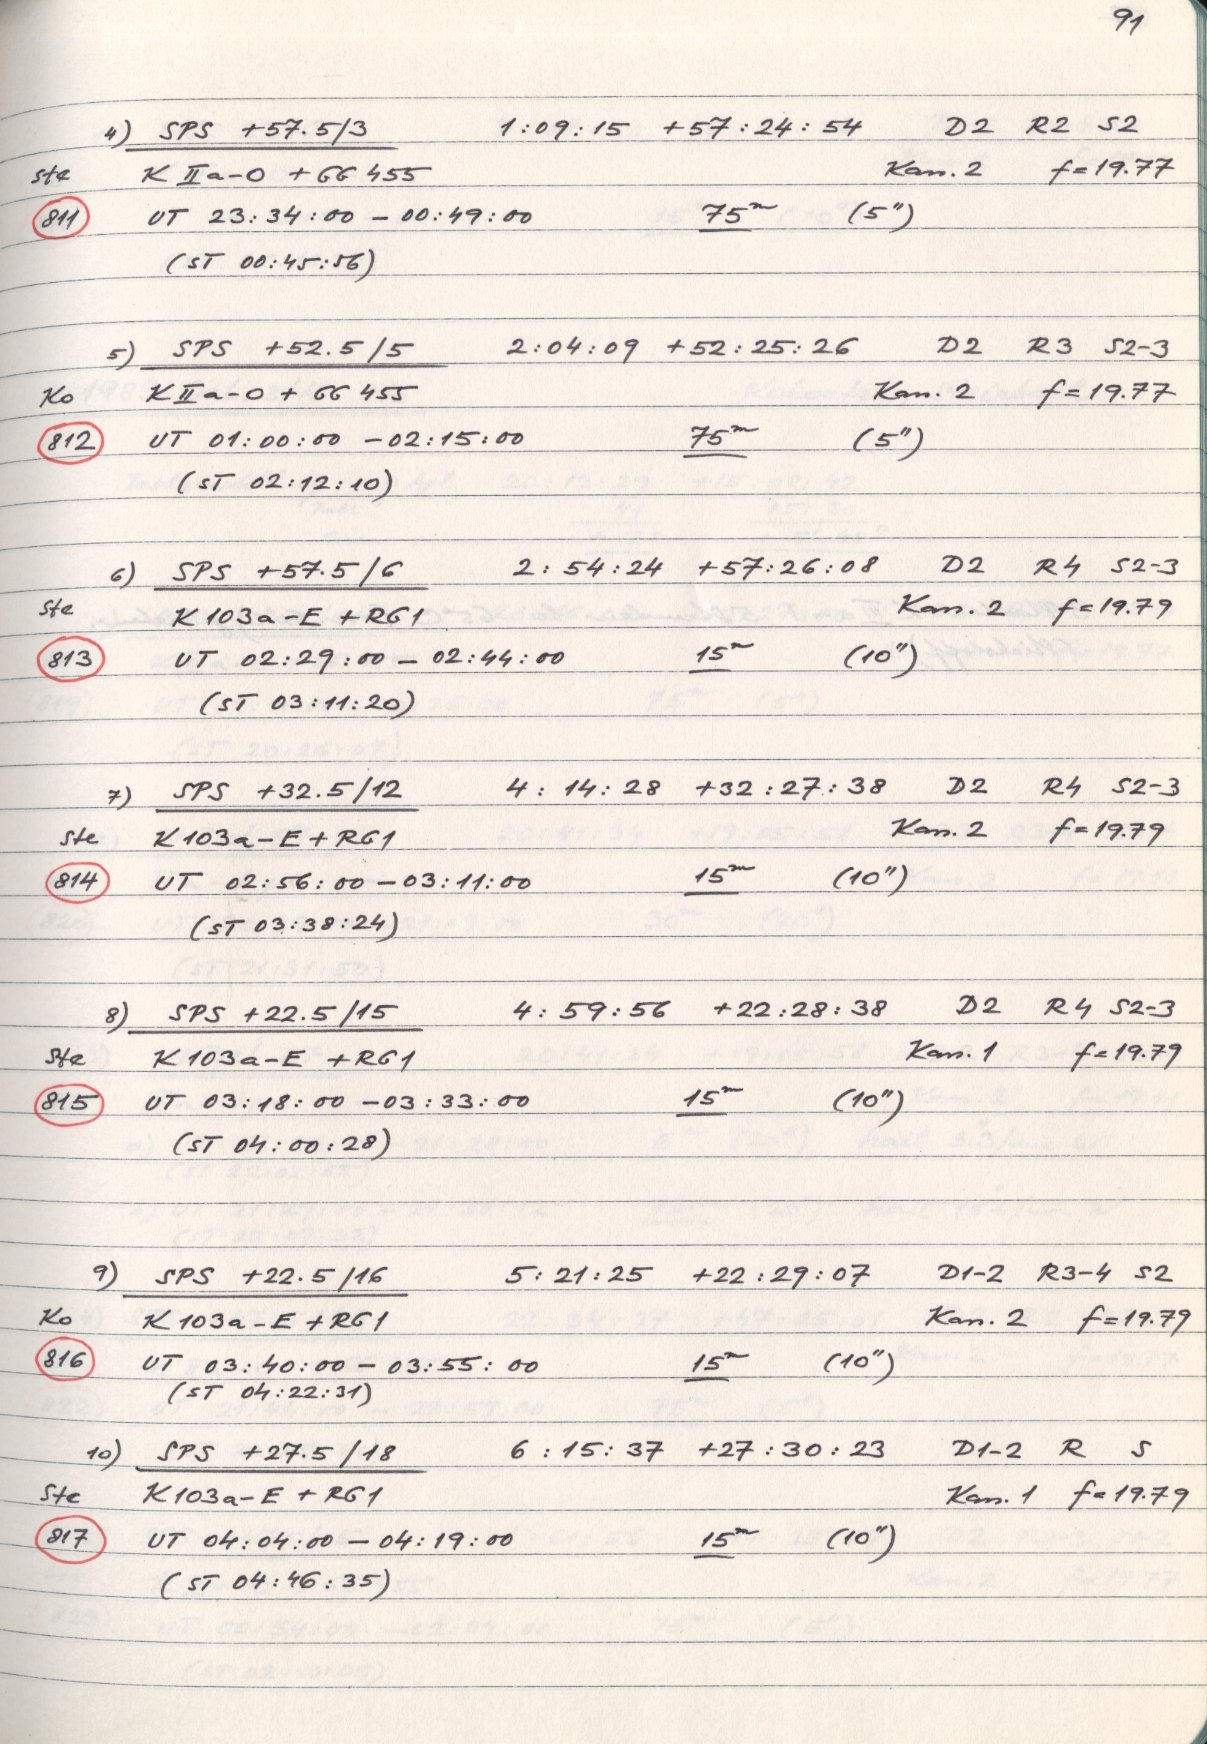 91
4) SPS +57.5/3 1:09:15 +57:24:54 D2 R2 S2
Ste K IIa-O + GG 455 Kan. 2 f=19.77
811 UT 23:34:00 - 00:49:00 75m (5")
(ST 00:45:56)
5) SPS +52.5/5 2:04:09 +52:25:26 D2 R3 S2-3
Ko K IIa-O + GG 455 Kan. 2 f=19.77
812 UT 01:00:00 - 02:15:00 75m (5")
(ST 02:12:10)
6) SPS +57.5/6 2:54:24 +57:26:08 D2 R4 S2-3
Ste K 103a-E + RG1 Kan. 2 f=19.79
813 UT 02:29:00 - 02:44:00 15m (10")
(ST 03:11:20)
7) SPS +32.5/12 4:14:28 +32:27:38 D2 R4 S2-3
Ste K 103a-E + RG1 Kan. 2 f=19.79
814 UT 02:56:00 - 03:11:00 15m (10")
(ST 03:38:24)
8) SPS +22.5/15 4:59:56 +22:28:38 D2 R4 S2-3
Ste K 103a-E + RG1 Kan. 1 f=19.79
815 UT 03:18:00 - 03:33:00 15m (10")
(ST 04:00:28)
9) SPS +22.5/16 5:21:25 +22:29:07 D1-2 R3-4 S2
Ko K 103a-E + RG1 Kan. 2 f=19.79
816 UT 03:40:00 - 03:55:00 15m (10")
(ST 04:22:31)
10) SPS +27.5/18 6:15:37 +27:30:23 D1-2 R S
Ste K 103a-E + RG1 Kan. 1 f=19.79
817 UT 04:04:00 - 04:19:00 15m (10")
(ST 04:46:35)